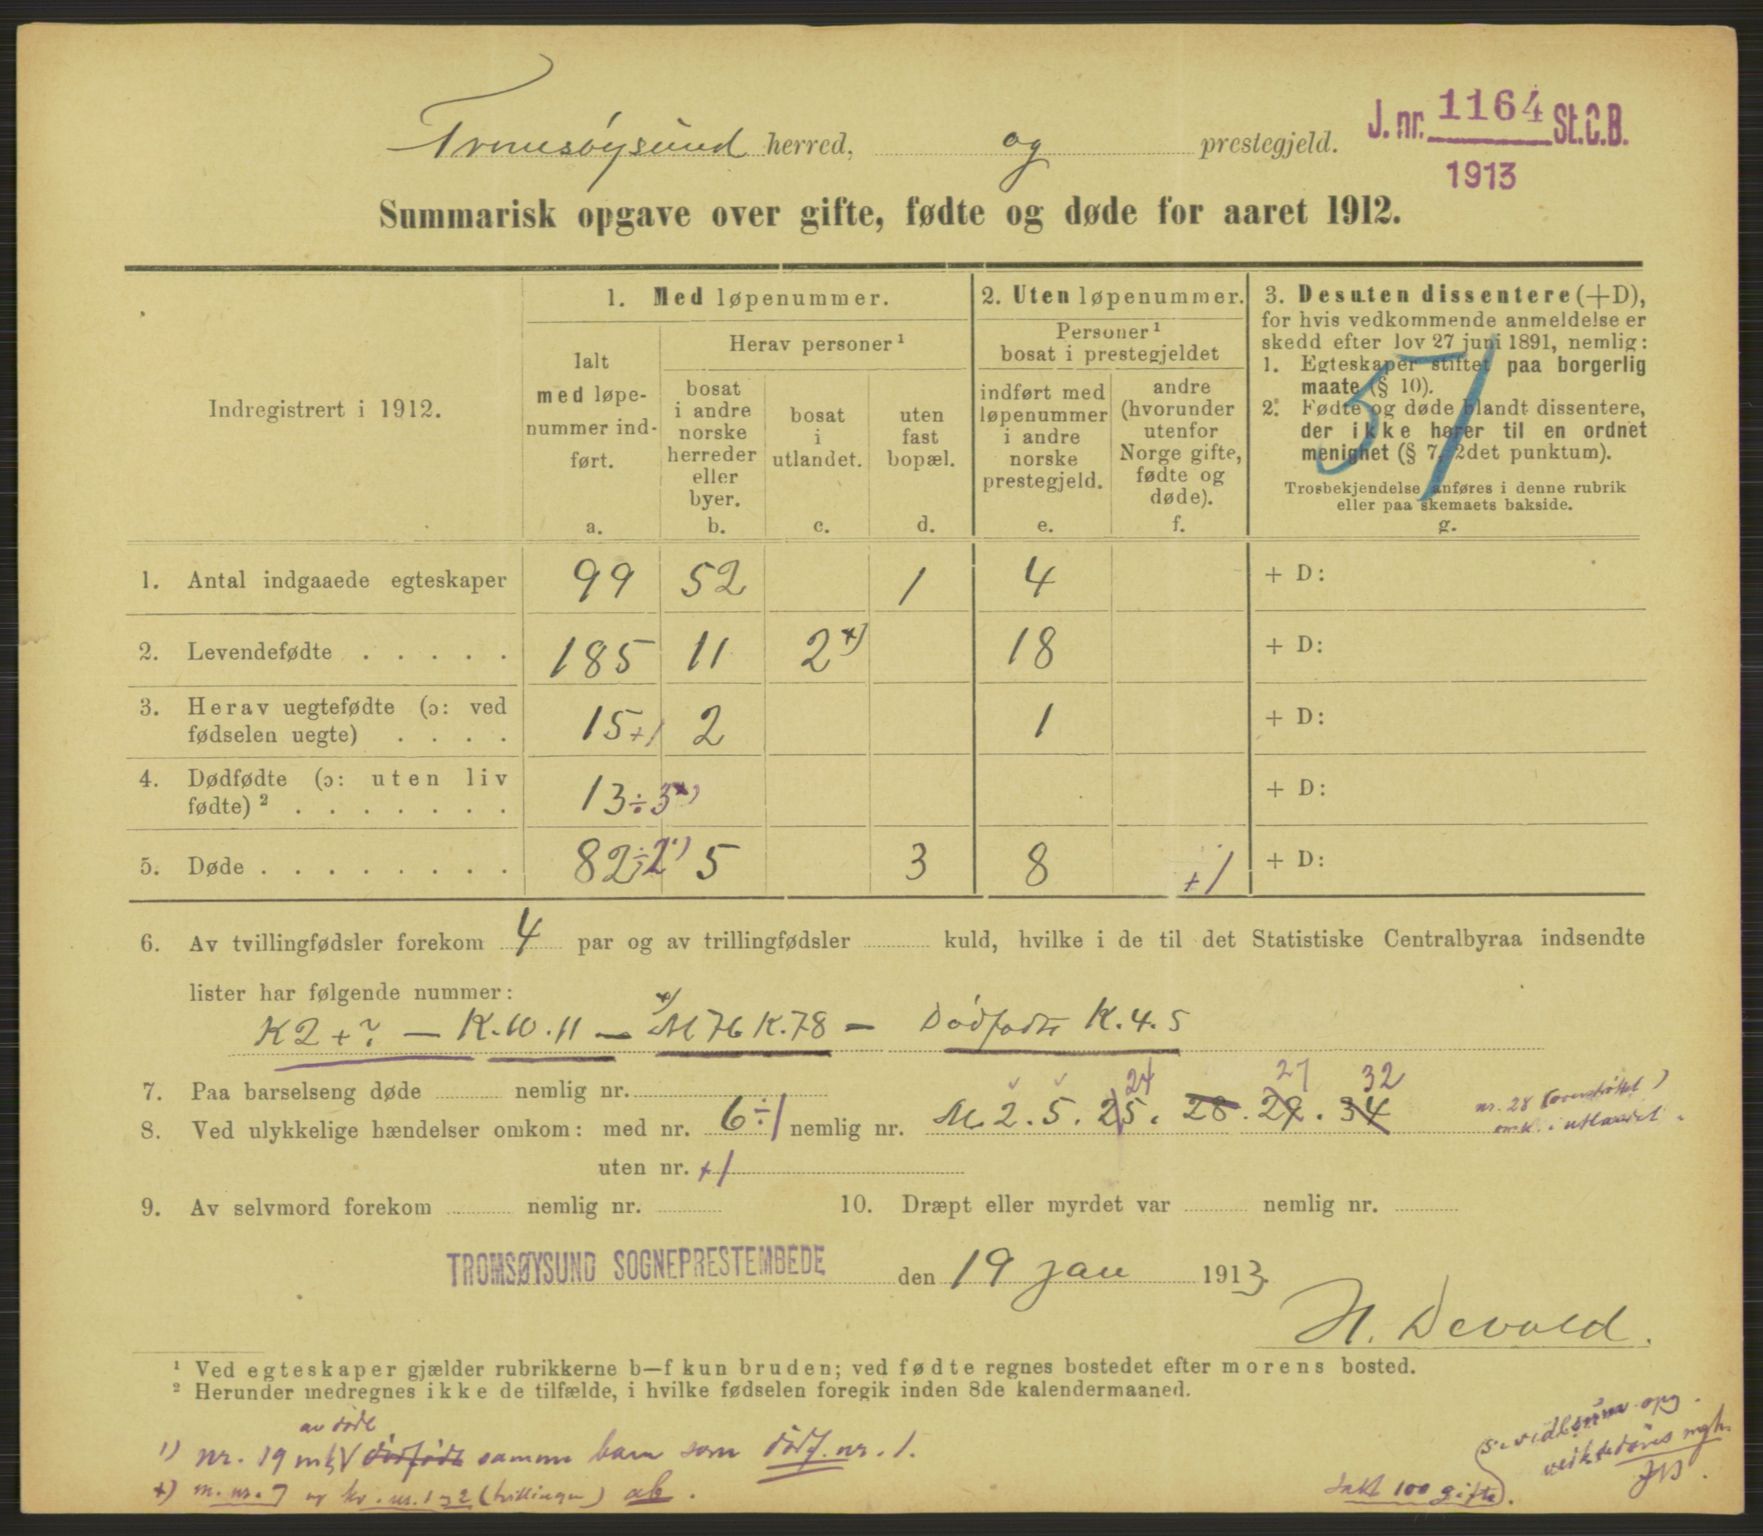 Tromsøysund herred, og prestegjeld.
J. nr. 1164 St.C.B.
1913
Summarisk opgave over gifte, fødte og døde for aaret 1912.
Indregistrert i 1912.
1. Med løpenummer.
Ialt
med løpe-
nummer ind-
ført.
a.
Herav personer ¹
bosat
i andre
norske
herreder
eller
byer.
b.
bosat
i
utlandet.
c.
uten
fast
bopæl.
d.
2. Uten løpenummer.
Personer ¹
bosat i prestegjeldet
indført med
løpenummer
i andre
norske
prestegjeld.
e.
andre
(hvorunder
utenfor
Norge gifte,
fødte og
døde).
f.
3. Desuten dissentere (+D),
for hvis vedkommende anmeldelse er
skedd efter lov 27 juni 1891, nemlig:
1. Egteskaper stiftet paa borgerlig
maate (§ 10).
2. Fødte og døde blandt dissentere,
der ikke hører til en ordnet
menighet (§ 7, 2det punktum).
Trosbekjendelse anføres i denne rubrik
eller paa skemaets bakside.
g.
57
1. Antal indgaaede egteskaper 99 52 1 4 + D:
2. Levendefødte . . . . . 185 11 2 x) 18 + D:
3. Herav uegtefødte (ɔ: ved
fødselen uegte) . . . . 15 +1 2 1 + D:
4. Dødfødte (ɔ: uten liv
fødte) ² . . . . . . . 13 ÷ 3 x) + D:
5. Døde . . . . . . . . 82 ÷ 2 ¹) 5 3 8 +1 + D:
6. Av tvillingfødsler forekom 4 par og av trillingfødsler kuld, hvilke i de til det Statistiske Centralbyraa indsendte
lister har følgende nummer:
K 2 + ? — K. 10. 11 — x) M 76 K. 78 — Dödfödte K. 4. 5
7. Paa barselseng døde nemlig nr.
24 27 32
8. Ved ulykkelige hændelser omkom: med nr. 6 ÷ 1 nemlig nr. M. 2. 5. 25. 28. 29. 34
nr. 28
omk. i utlandet.
uten nr. +1
9. Av selvmord forekom nemlig nr. 10. Dræpt eller myrdet var nemlig nr.
TROMSØYSUND SOGNEPRESTEMBEDE den 19 jan 1913.
H. Devold.
¹ Ved egteskaper gjælder rubrikkerne b—f kun bruden; ved fødte regnes bostedet efter morens bosted.
² Herunder medregnes ikke de tilfælde, i hvilke fødselen foregik inden 8de kalendermaaned.
av døde
1) nr. 19 mk dødfødt samme barn som dødf. nr. 1.
x) m. nr. 7 og kv. nr. 1 og 2 (trillinger) ab.
Takt 100 gifte.